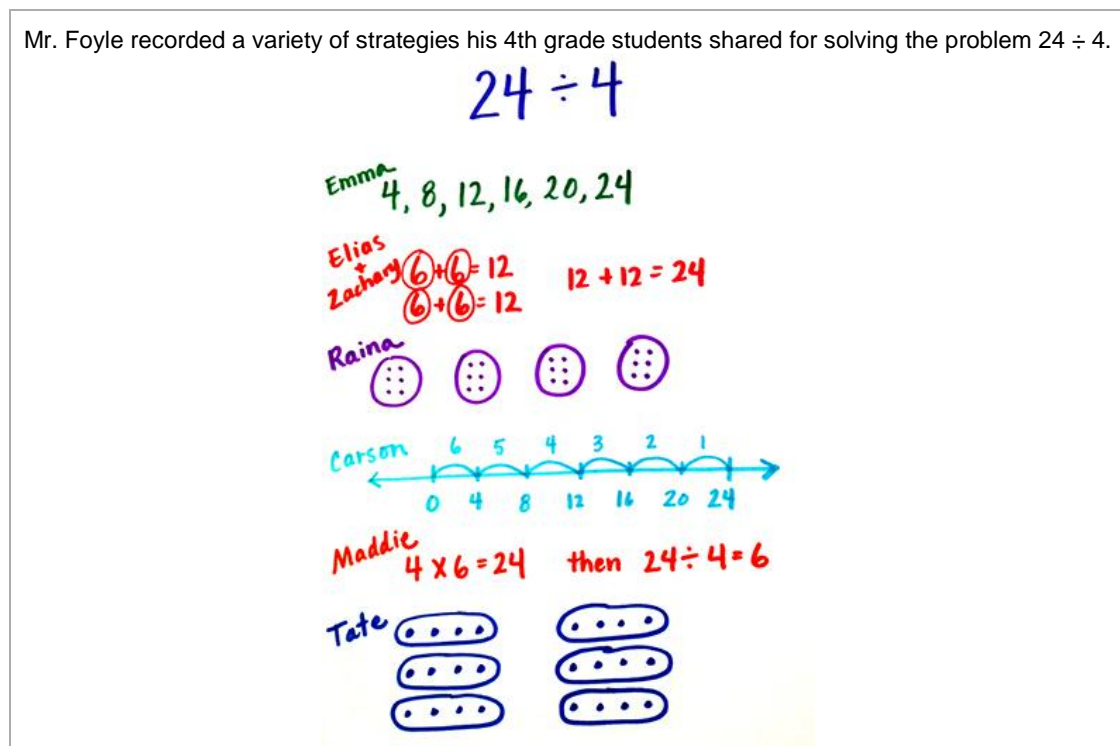 Mr. Foyle recorded a variety of strategies his 4th grade students shared for solving the problem 24 ÷ 4.
24 ÷ 4
Emma
4, 8, 12, 16, 20, 24
Elias
+
Zachary
6 + 6 = 12 12 + 12 = 24
6 + 6 = 12
Raina
Carson
6 5 4 3 2 1
0 4 8 12 16 20 24
Maddie
4 x 6 = 24 then 24 ÷ 4 = 6
Tate